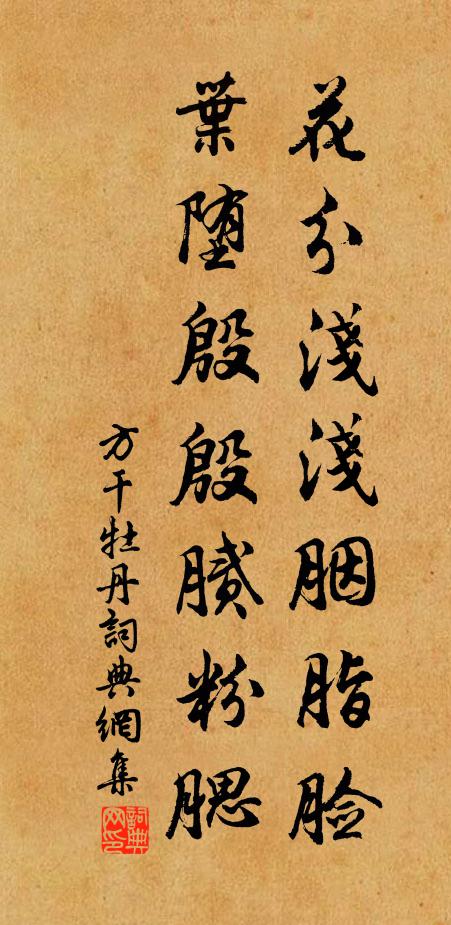 花分淺淺胭脂脸
葉堕殷殷膩粉腮
方干牡丹詞典網集
詞典网印